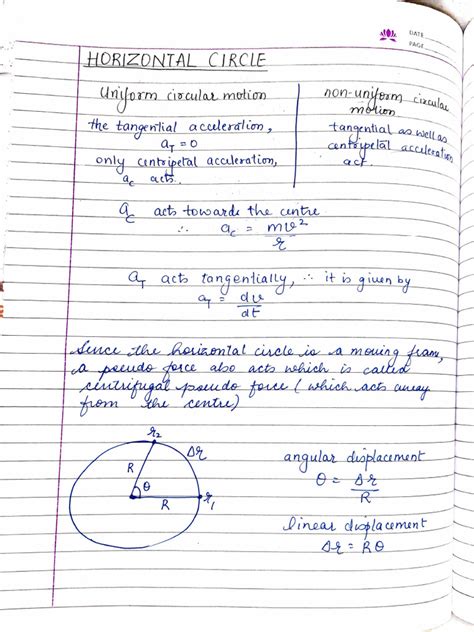 DATE
PAGE
HORIZONTAL CIRCLE
Uniform circular motion
the tangential acceleration,
a_T = 0
only centripetal acceleration,
a_c acts.
non-uniform circular
motion
tangential as well as
centripetal acceleration
act.
a_c acts towards the centre
∴ a_c = mv²/r
a_T acts tangentially, ∴ it is given by
a_T = dv/dt
Since the horizontal circle is a moving fram,
a pseudo force also acts which is called
centrifugal pseudo force (which acts away
from the centre)
r₂
Δr
R
θ
R
r₁
angular displacement
θ = Δr/R
linear displacement
Δr = Rθ